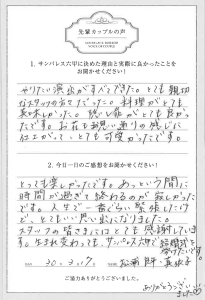 先輩カップルの声
1. サンパレス六甲に決めた理由と実際に良かったことを
お聞かせください！
やりたい演出がすべてできた。とても親切
なスタッフの方々だった。料理がとても
美味しかった。
たです。お花も想い通りの感じに
仕上がって、とても可愛かったです。
2. 今日一日のご感想をお聞かせください！
とっても楽しかったです。あっという間に
時間が過ぎて終わるのが寂しかった
です。人生で一番ぐらい緊張したけ
ど、とてもいい思い出になりました。
スタッフの皆さまにはとても感謝していま
す。生まれ変わっても、サンパレス六甲で結婚式を
挙げたいです。
30.3.17.
ご協力ありがとうございました。
ありがとうござい
ました